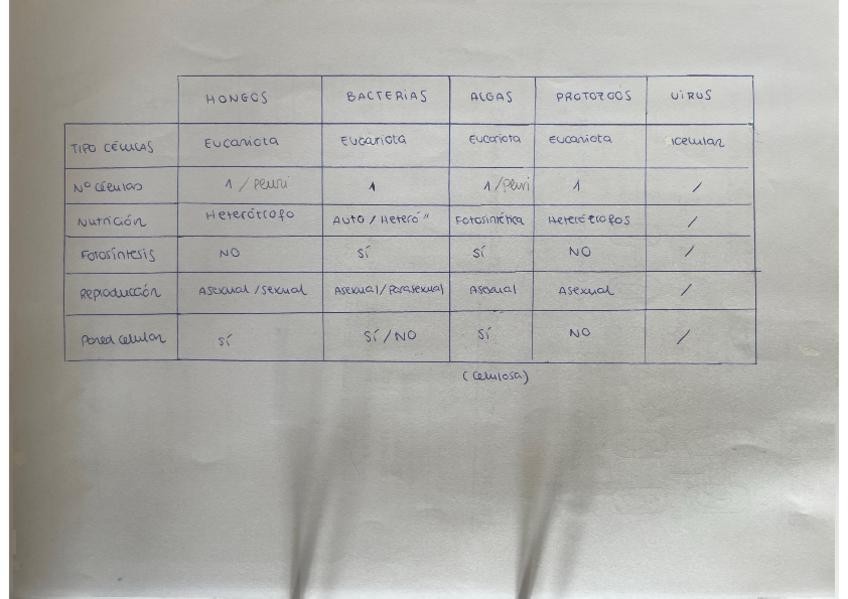 HONGOS BACTERIAS ALGAS PROTOZOOS VIRUS
TIPO CÉLULAS Eucariota Eucariota Eucariota Eucariota Icelular
Nº células 1 / Pluri 1 1 / Pluri 1 /
Nutrición Heterótrofo Auto / Heteró " Fotosintética Heterótrofos /
Fotosíntesis NO SÍ SÍ NO /
Reproducción Asexual / Sexual Asexual / Parasexual Asexual Asexual /
Pared celular SÍ SÍ / NO SÍ NO /
(Celulosa)